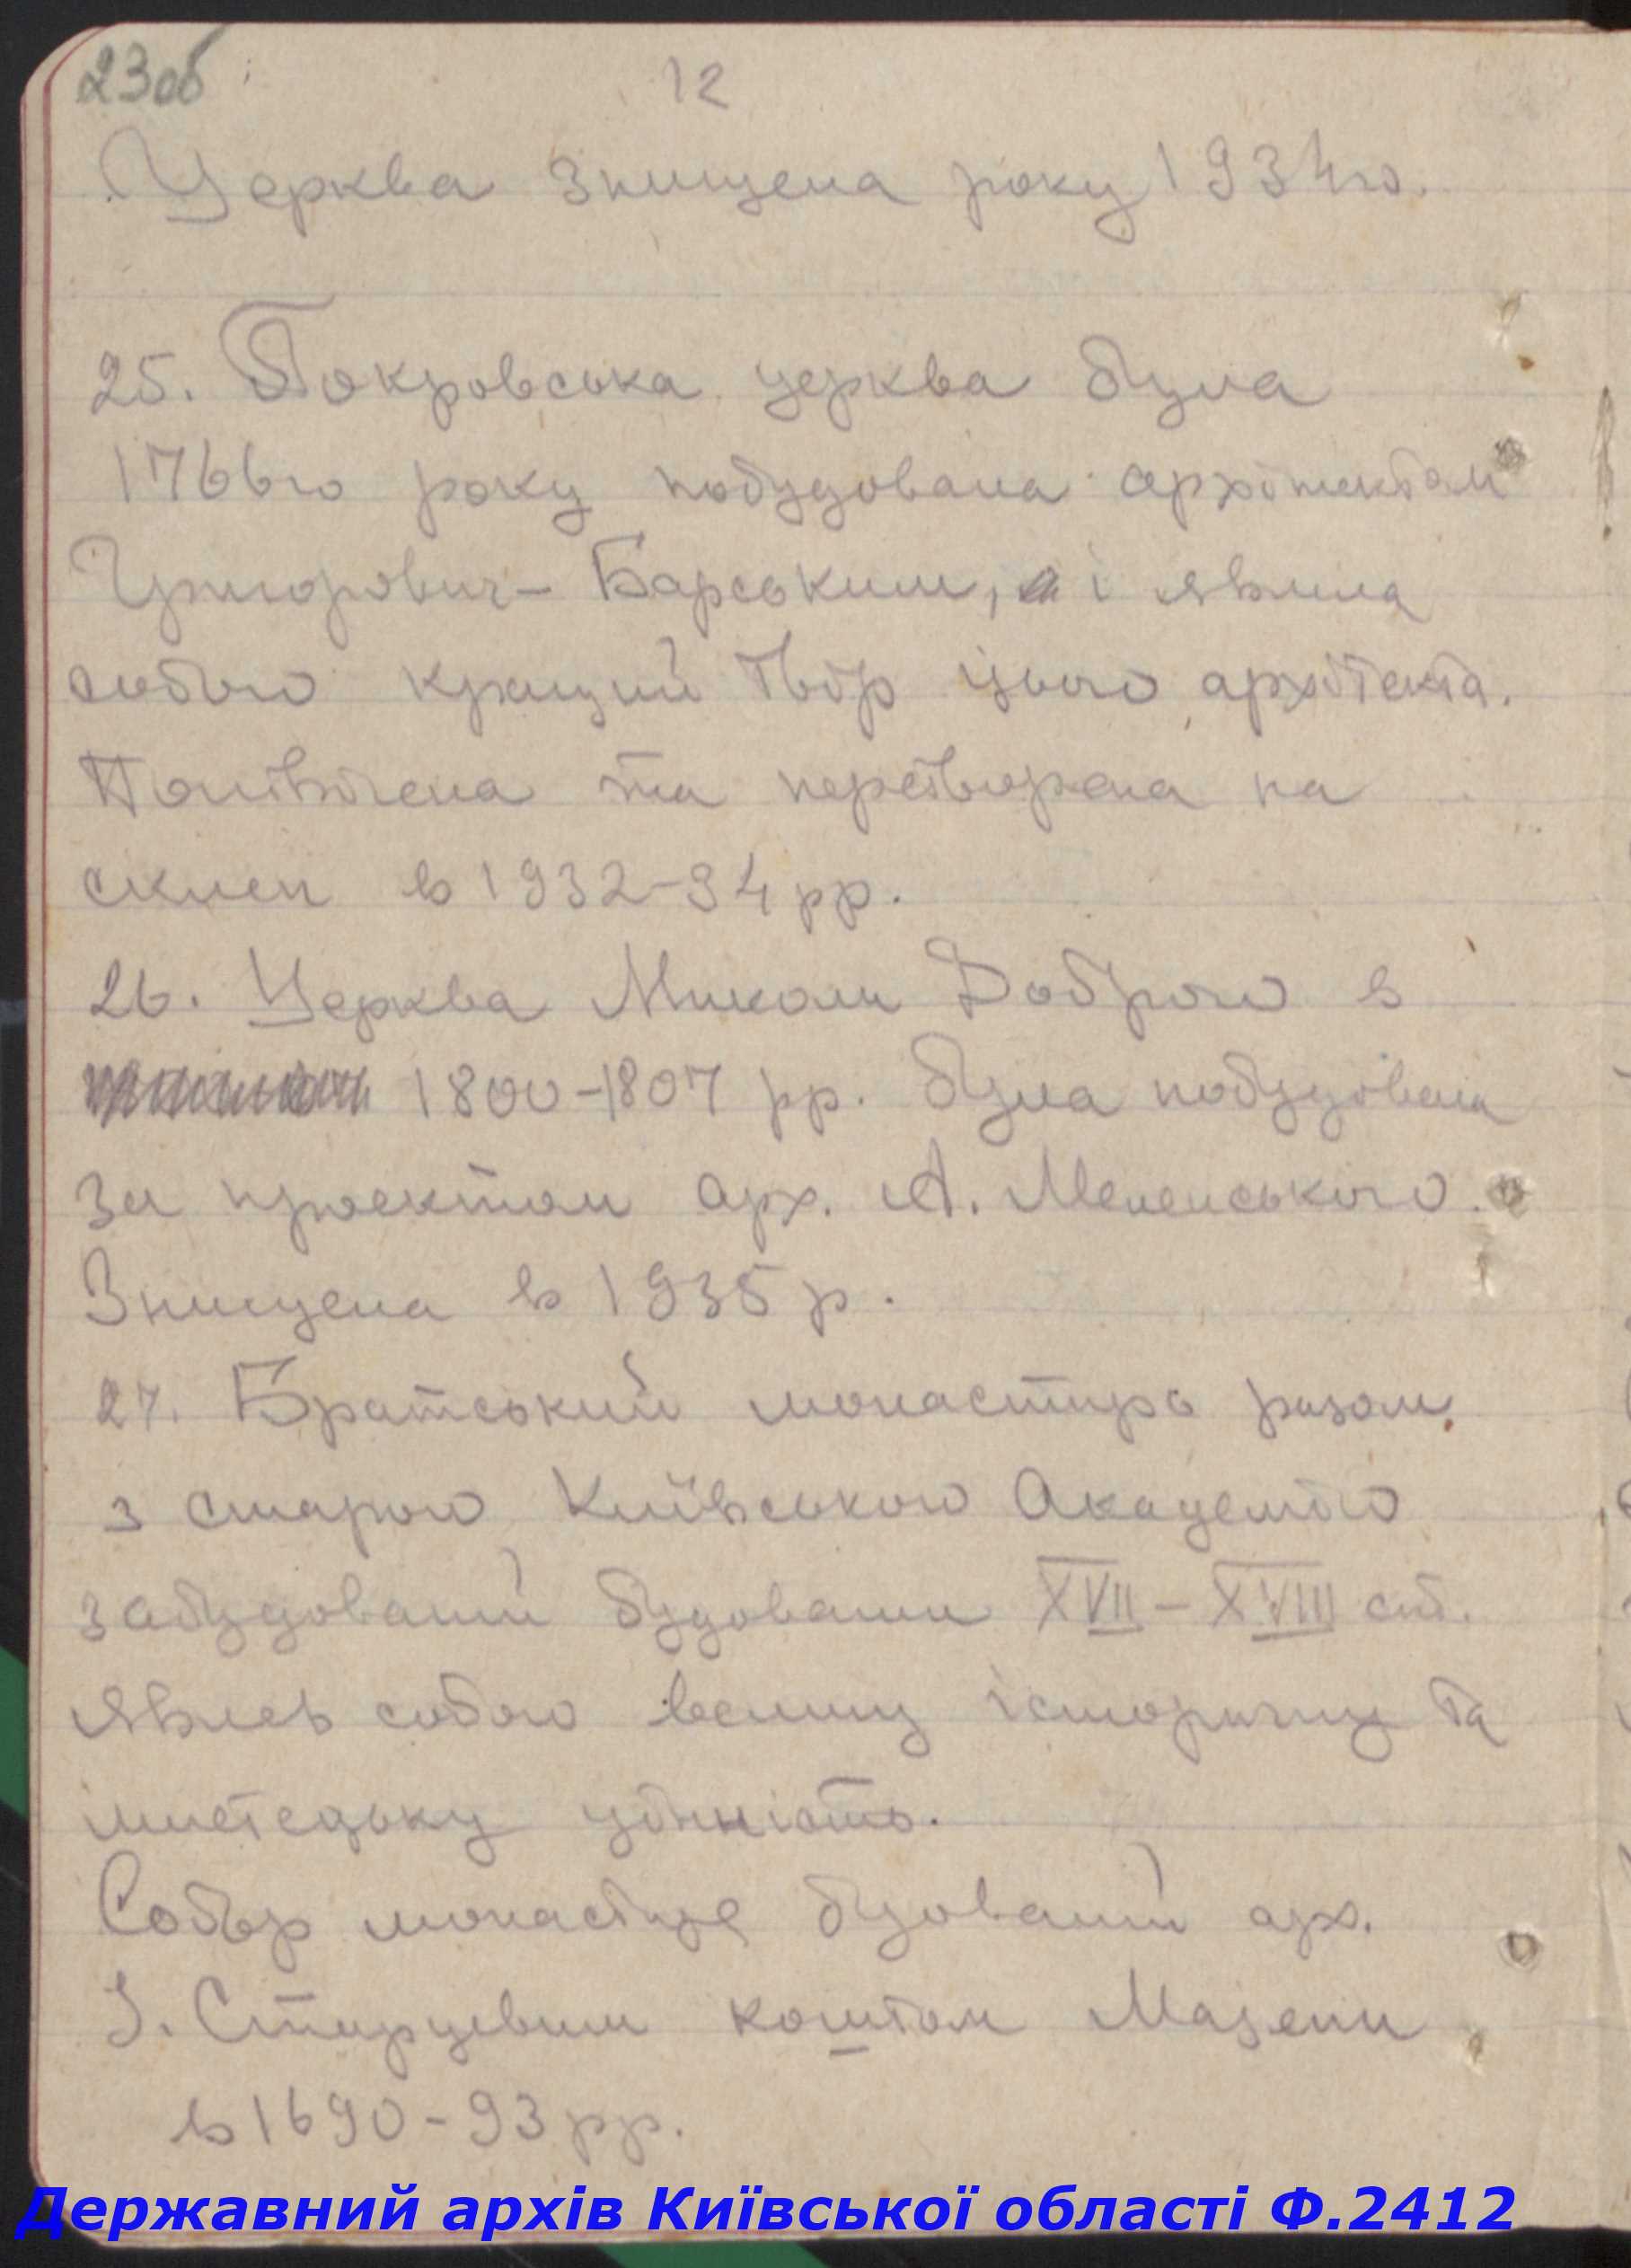 23об
12
Церква знищена року 1934го.
25. Покровська церква була
1766го року побудована архітектом
Григорович-Барським, і явила
собою кращий твір цього архітекта.
Понівічена та перетворена на
склеп в 1932-34 рр.
26. Церква Миколи Доброго в
1800-1807 рр. була побудована
за проектом арх. А. Меленського.
Знищена в 1935 р.
27. Братський монастирь разом
з старою Київською Академією
забудований будовами XVII-XVIII ст.
являв собою велику історичну та
мистецьку цінність.
Собор монастиря будований арх.
І. Старцевим коштом Мазепи
в 1690-93 рр.
Державний архів Київської області Ф.2412